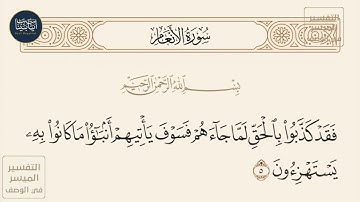 سُورَةُ الأَنْعَامِ
بِسْمِ اللَّهِ الرَّحْمَٰنِ الرَّحِيمِ
فَقَدْ كَذَّبُوا۟ بِٱلْحَقِّ لَمَّا جَآءَهُمْ فَسَوْفَ يَأْتِيهِمْ أَنۢبَٰٓؤُا۟ مَا كَانُوا۟ بِهِۦ
يَسْتَهْزِءُونَ ٥
التفسير
الميسر
في الوصف